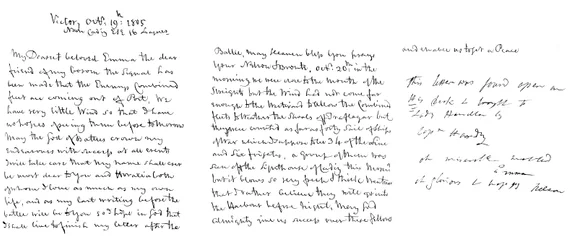 Victory Octr. 19th: 1805
Noon Cadiz ESE 16 Leagues
My Dearest beloved Emma the dear
friend of my bosom the signal has
been made that the Enemys Combined
fleet are coming out of Port. We
have very little Wind so that I have
no hopes of seeing them before tomorrow
May the God of Battles crown my
Endeavours with success at all events
I will take care that my name shall ever
be most dear to you and Horatia both
of whom I love as much as my own
life, and as my last writing before the
battle will be to you so I hope in God that
I shall live to finish my letter after the
Battle, may Heaven bless you prays
your Nelson & Bronte. Octr. 20th in the
morning we were close to the mouth of the
Streights but the Wind had not come far
enough to the Westward to allow the Combined
fleets to weather the Shoals of Traflagar but
they were counted as far as forty Sail of Ships
of War which I suppose to be 34 of the Line
and Six frigates, a group of them was
seen off the Lighthouse of Cadiz this Morng
but it blows so very fresh I think that
that I rather believe they will go into
the Harbour before night. May God
almighty give us success over these fellows
and enable us to get a Peace
This letter was found open on
His desk & brought to
Lady Hamilton by
Capn Hardy
oh miserable wretched
Emma
oh glorious & happy Nelson